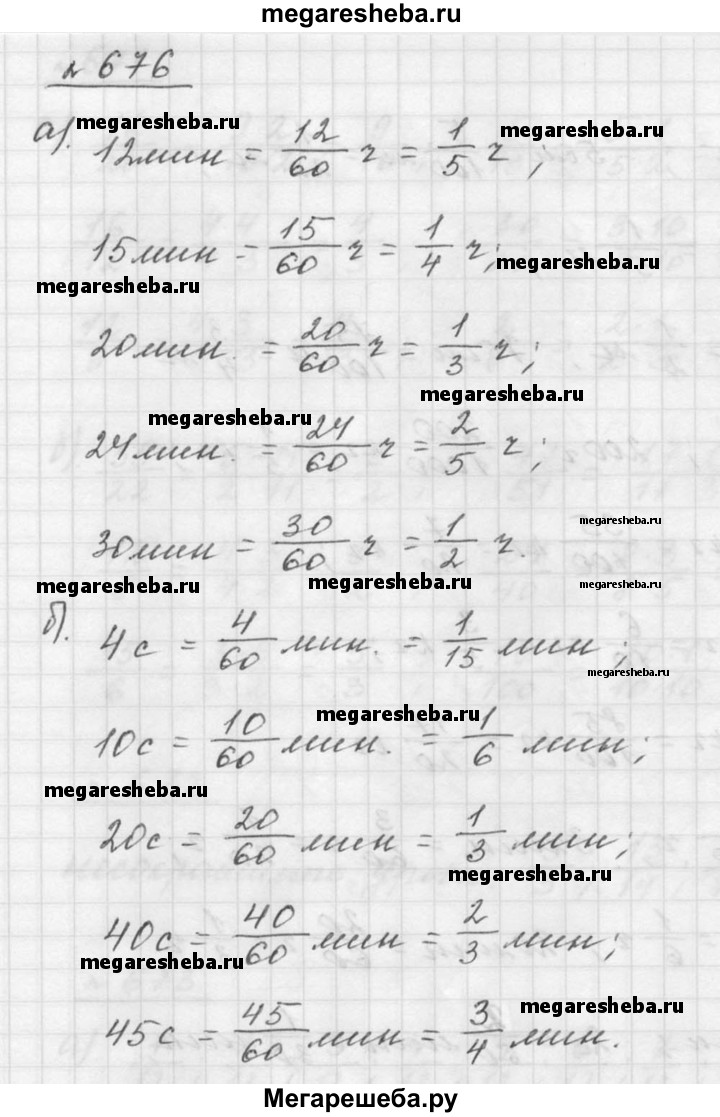 megaresheba.ru
№ 676
megaresheba.ru
megaresheba.ru
а). 12 мин = 12/60 ч = 1/5 ч ;
15 мин = 15/60 ч = 1/4 ч ;
megaresheba.ru
megaresheba.ru
20 мин. = 20/60 ч = 1/3 ч ;
megaresheba.ru
megaresheba.ru
24 мин. = 24/60 ч = 2/5 ч ;
megaresheba.ru
30 мин = 30/60 ч = 1/2 ч.
megaresheba.ru
megaresheba.ru
б). 4 с = 4/60 мин. = 1/15 мин ;
megaresheba.ru
megaresheba.ru
10 с = 10/60 мин. = 1/6 мин ;
megaresheba.ru
20 с = 20/60 мин = 1/3 мин ;
megaresheba.ru
40 с = 40/60 мин = 2/3 мин ;
megaresheba.ru
megaresheba.ru
45 с = 45/60 мин = 3/4 мин.
Мегарешеба.ру